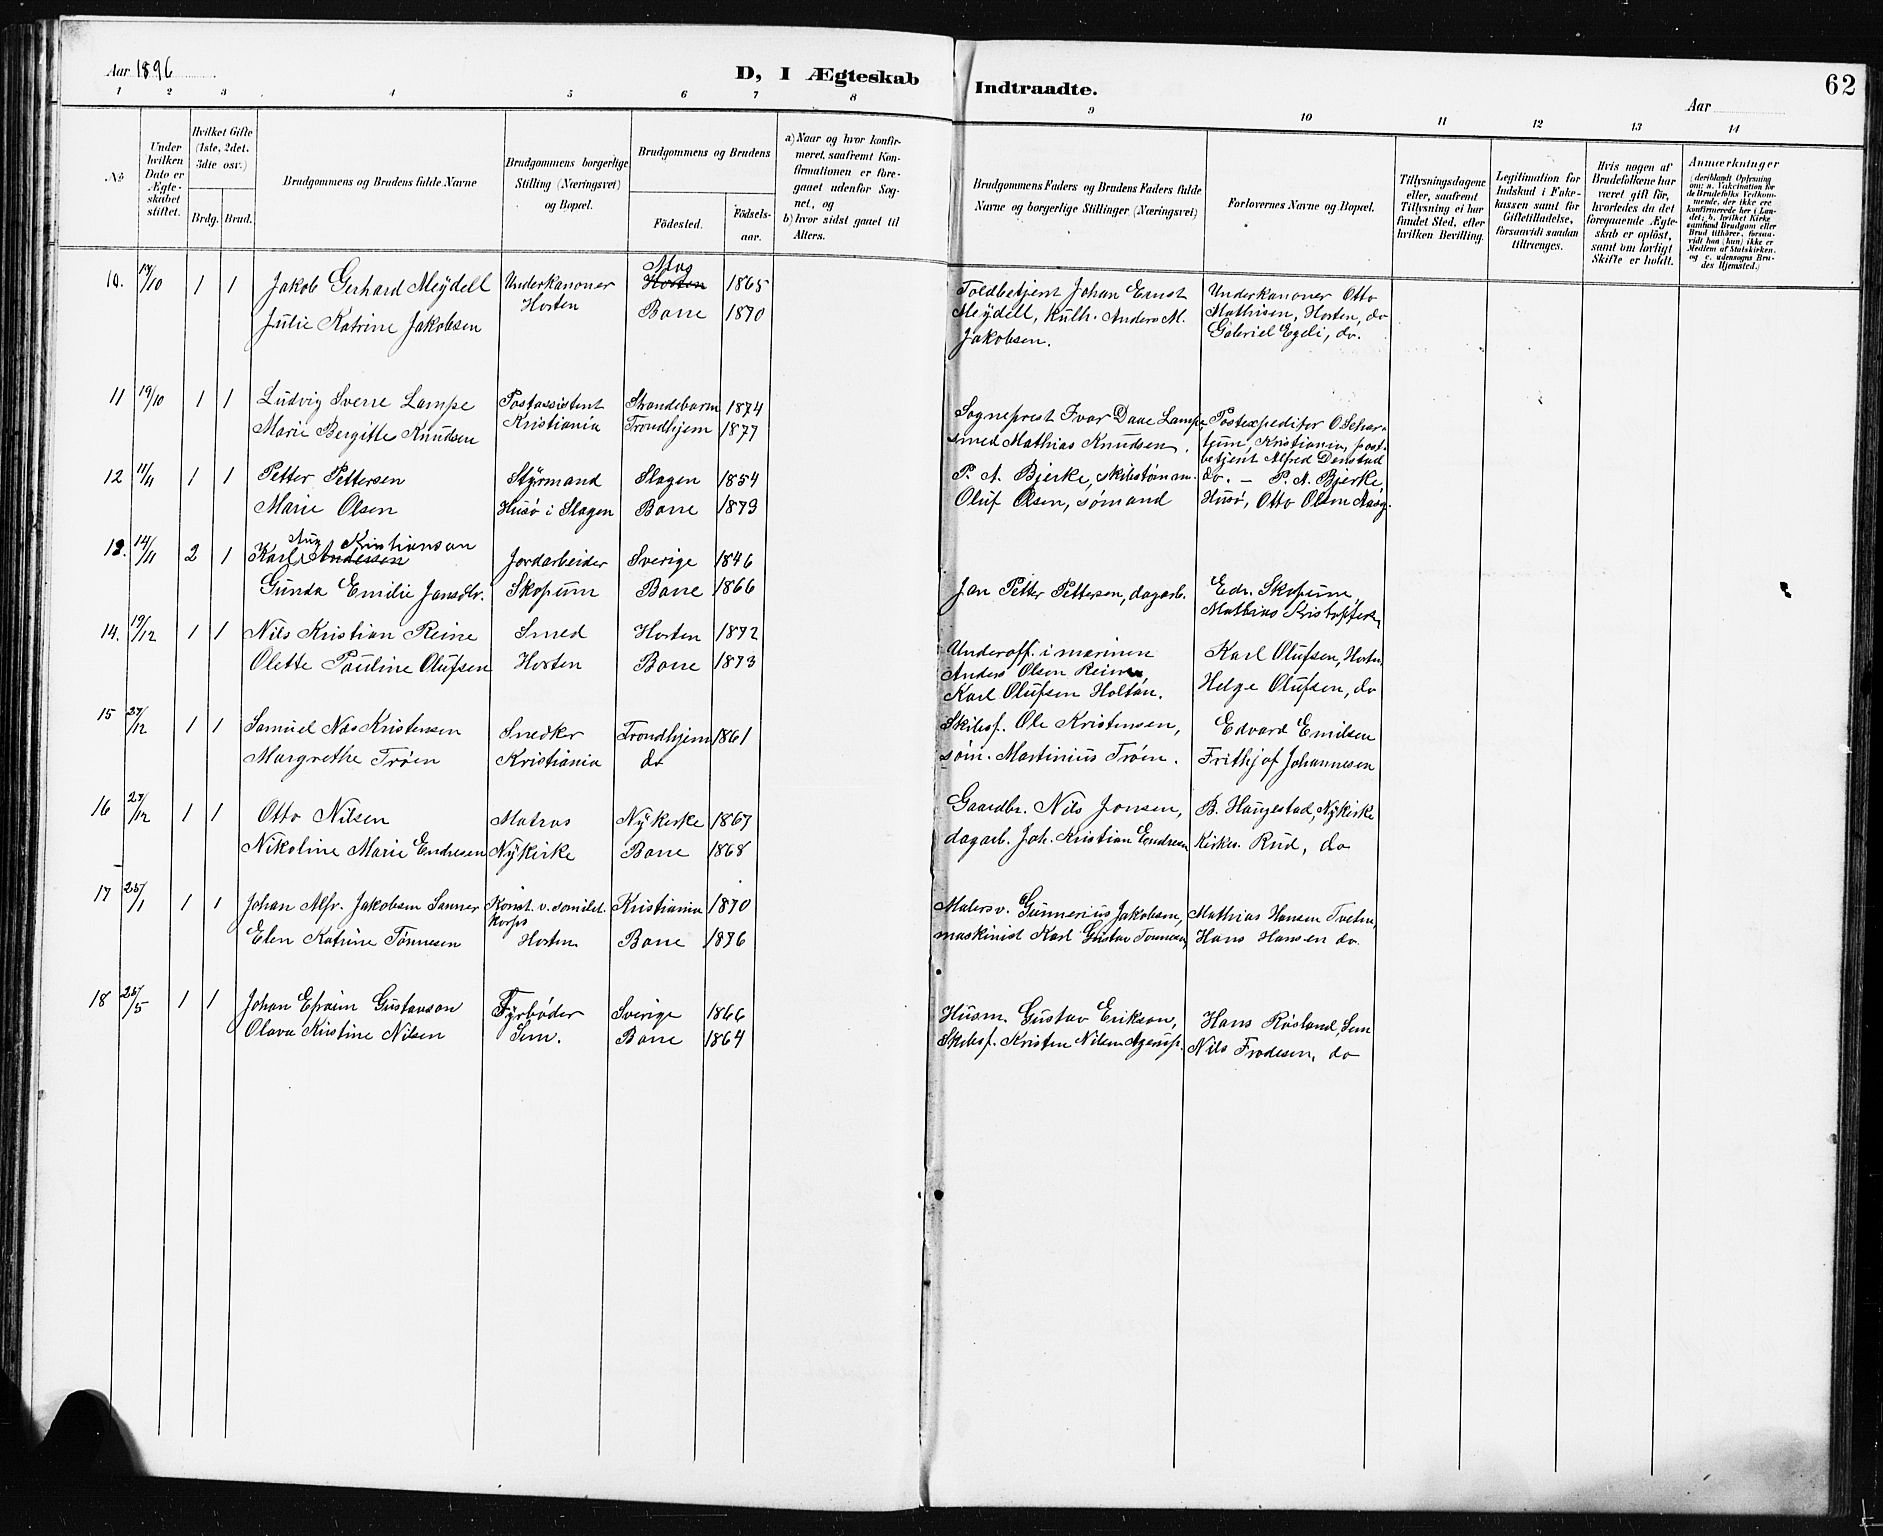 Aar 1896
D, I Ægteskab Indtraadte.
Aar
62
1 2 3 4 5 6 7 8 9 10 11 12 13 14
No
Under hvilken Dato er Ægteskabet stiftet.
Hvilket Gifte (1ste, 2det, 3die osv.)
Brdg. Brud.
Brudgommens og Brudens fulde Navne
Brudgommens borgerlige Stilling (Næringsvei) og Bopæl.
Brudgommens og Brudens
Födested. Födsels-aar.
a) Naar og hvor konfirmeret, saafremt Konfirmationen er foregaaet udenfor Sognet, og
b) hvor sidst gaaet til Alters.
Brudgommens Faders og Brudens Faders fulde Navne og borgerlige Stillinger (Næringsvei)
Forlovernes Navne og Bopæl.
Tillysningsdagene eller, saafremt Tillysning ei har fundet Sted, efter hvilken Bevilling.
Legitimation for Indskud i Enkekassen samt for Giftetilladelse, forsaavidt saadan tiltrænges.
Hvis nogen af Brudefolkene har været gift før, hvorledes da det foregaaende Ægteskab er opløst, samt om lovligt Skifte er holdt.
Anmærkninger
(deriblandt Oplysning om: a. Vakcination for de Brudefolks Vedkommende, der ikke ere konfirmerede her i Landet; b. hvilket Kirkesamfund Brudgom eller Brud tilhører, forsaavidt han (hun) ikke er Medlem af Statskirken, og c. udensogns Brudes Hjemsted.)
10. 17/10 1 1 Jakob Gerhard Meÿdell Underkanoner Horten 1865 Toldbetjent Johan Ernst Underkanoner Otto
Julie Katrine Jakobsen Horten Borre 1870 Meÿdell, Kulh. Anders M. Mathisen, Horten, do
Jakobsen. Gabriel Egeli, do.
11 19/10 1 1 Ludvig Sverre Lampe Postassistent Strandebarm 1874 Sogneprest Ivar Daae Lampe, Postexpeditor O Schar-
Marie Bergitte Knudsen Kristiania Trondhjem 1877 smed Mathias Knudsen. tum, Kristiania, post-
betjent Alfred Denstad
12 11/11 1 1 Petter Pettersen Styrmand Slagen 1854 P. A. Bjerke, skibstømm. do. — P. A. Bjerke
Marie Olsen Husø i Slagen Borre 1873 Oluf Olsen, sømand Husø, Otto Olsen Aasg.
13. 14/11 2 1 Karl Aug Kristiansen Andersen Jordarbeider Sverige 1846
Gunda Emilie Jansdtr. Skopum Borre 1866 Jan Petter Pettersen, dagarb. Edv. Skopum,
Mathias Kristoffers.
14. 19/12 1 1 Nils Kristian Reine Smed Horten 1872 Underoff. i marinen Karl Olufsen, Hortn,
Olette Pauline Olufsen Horten Borre 1873 Anders Olsen Reine, Helge Olufsen, do
Karl Olufsen Holtan.
15 27/12 1 1 Samuel Kristensen Snedker Trondhjem 1861 Skibsf. Ole Kristensen, Edvard Emilsen
Margrethe Trøen Kristiania do søm. Martinius Trøen. Frithjof Johannesen
16 27/12 1 1 Otto Nilsen Matros Nykirke 1867 Gaardbr. Nils Jonsen, B. Haugestad, Nykirke
Nikoline Marie Endresen Nykirke Borre 1868 dagarb. Joh. Kristian Endresen Kirkes. Rud, do
17 25/1 1 1 Johan Alfr. Jakobsen Sanner Konst. v. somilit. korps Kristiania 1870 Malersv. Gunnerius Jakobsen, Mathias Hansen Tveten,
Elen Katrine Tønnesen Horten Borre 1876 maskinist Karl Gustav Tønnesen, Hans Hansen do.
18 25/5 1 1 Johan Efraim Gustavson Fyrbøder Sverige 1866 Husm. Gustav Erikson, Hans Røsland, Sem
Olava Kristine Nilsen Sem. Borre 1864 Skibsf. Kristen Nilsen Agerup. Nils Frodesen, do